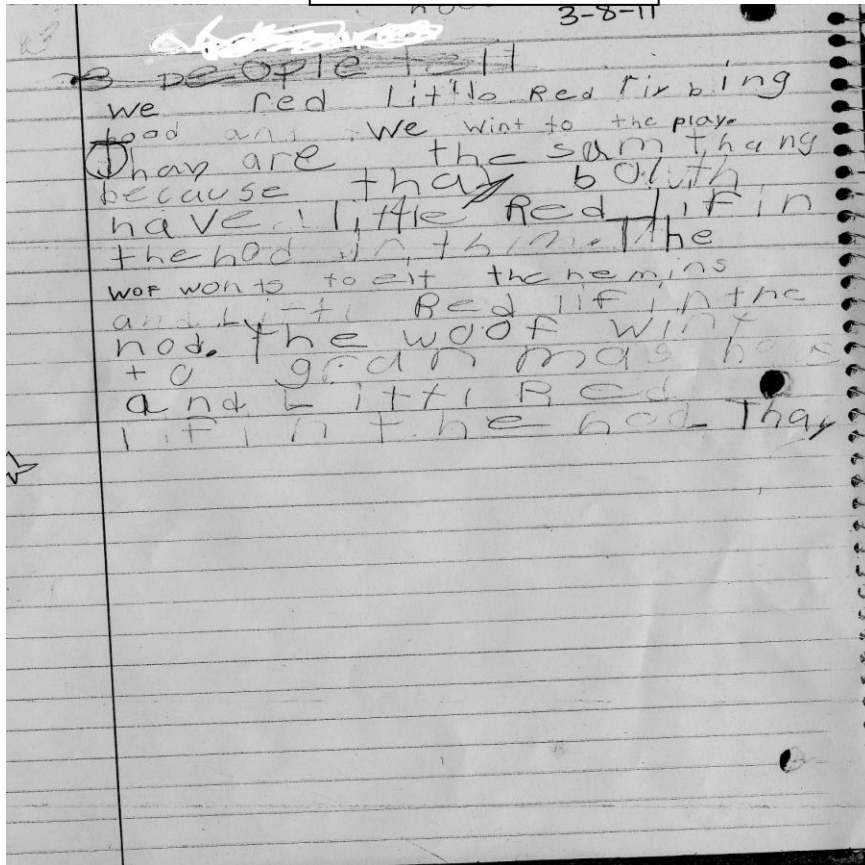 3-8-11
people tell
we red Little Red rir bing
hood and we wint to the play.
Thay are the sam thang
because thay bouth
have little Red lif in
the hod in thim. The
wof wonts to eit the hemins
and Litti Red lif in the
hod. the woof wint
to granmas
and Litti Red
lif in the hod. Thay